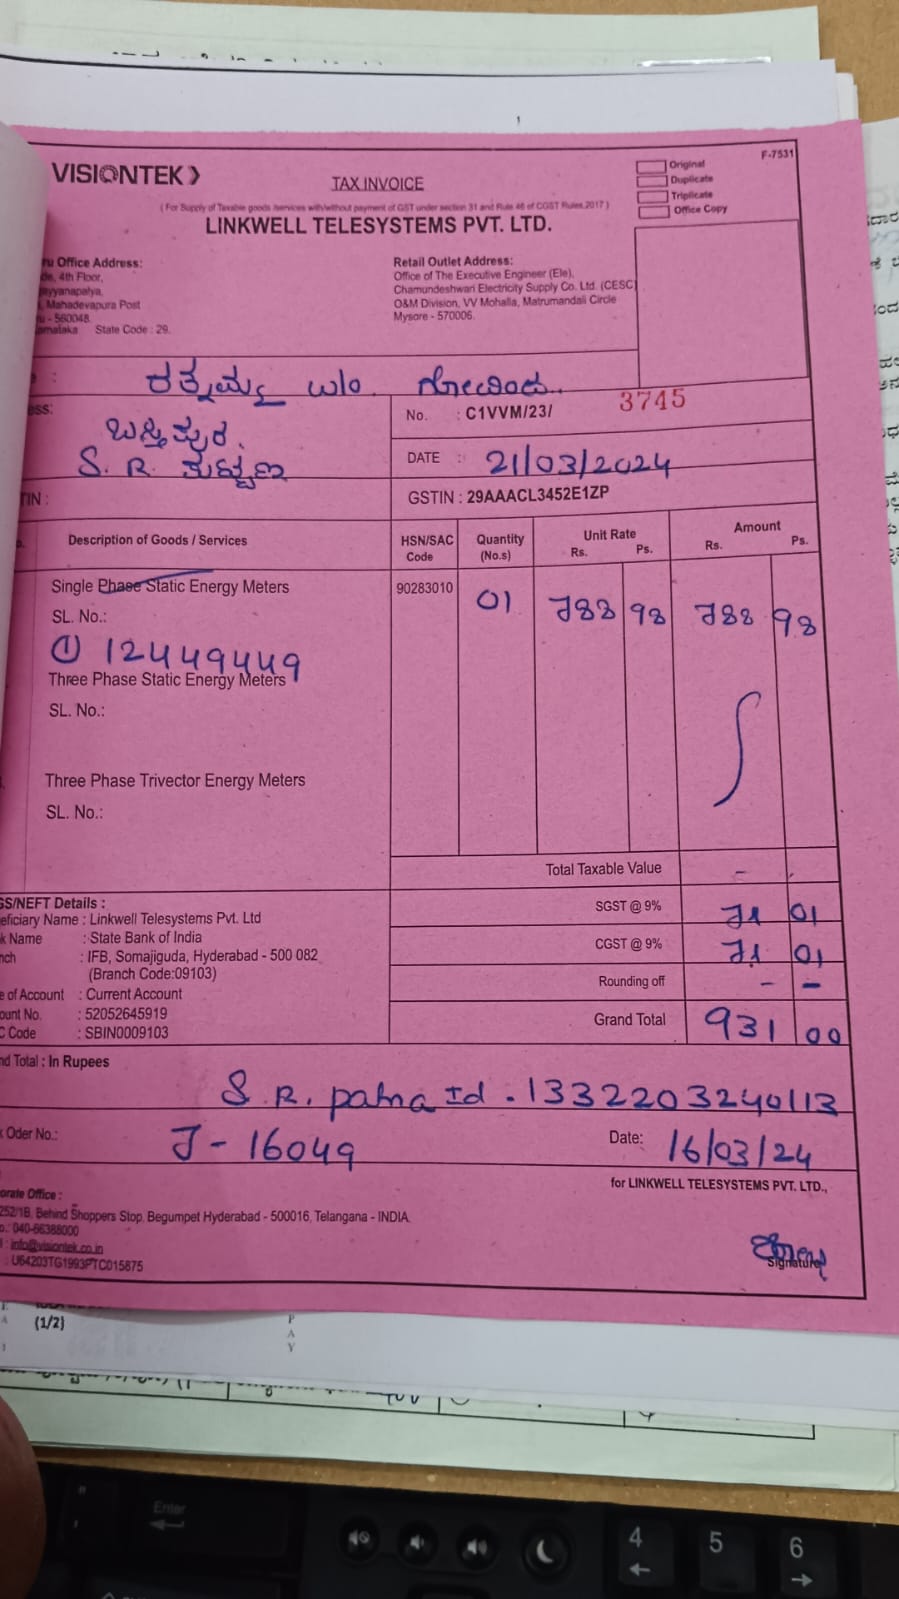 VISIONTEK
TAX INVOICE
Original
Duplicate
Triplicate
Office Copy
F-7531
( For Supply of Taxable goods /services with/without payment of GST under section 31 and Rule 46 of CGST Rules,2017 )
LINKWELL TELESYSTEMS PVT. LTD.
Office Address:
4th Floor,
Mahadevapura Post
- 560048.
State Code : 29.
Retail Outlet Address:
Office of The Executive Engineer (Ele),
Chamundeshwari Electricity Supply Co. Ltd. (CESC)
O&M Division, VV Mohalla, Matrumandali Circle
Mysore - 570006.
W/o.
No. : C1VVM/23/ 3745
S. R.
DATE : 21/03/2024
GSTIN : 29AAACL3452E1ZP
Description of Goods / Services
HSN/SAC Code
Quantity (No.s)
Unit Rate Rs. Ps.
Amount Rs. Ps.
Single Phase Static Energy Meters 90283010 01 788 98 788 98
SL. No.:
① 12449449
Three Phase Static Energy Meters
SL. No.:
Three Phase Trivector Energy Meters
SL. No.:
Total Taxable Value -
GS/NEFT Details :
eficiary Name : Linkwell Telesystems Pvt. Ltd
k Name : State Bank of India
nch : IFB, Somajiguda, Hyderabad - 500 082
(Branch Code:09103)
e of Account : Current Account
ount No. : 52052645919
C Code : SBIN0009103
SGST @ 9% 71 01
CGST @ 9% 71 01
Rounding off - -
Grand Total 931 00
nd Total : In Rupees
S. R. patna Id . 1332203240113
Oder No.: J - 16049 Date: 16/03/24
for LINKWELL TELESYSTEMS PVT. LTD.,
orate Office :
252/1B, Behind Shoppers Stop, Begumpet Hyderabad - 500016, Telangana - INDIA
040-66388000
info@visiontek.co.in
: U64203TG1993PTC015875
Signature
(1/2)
P
A
Y
Enter
4
5
6